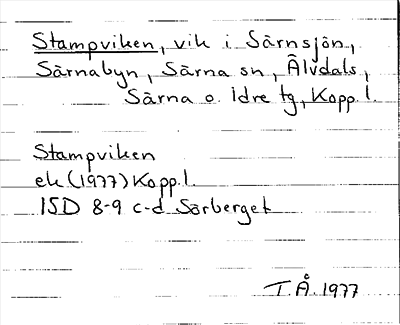 Stampviken, vik i Särnsjön,
Särnabyn, Särna sn, Älvdals,
Särna o. Idre tg, Kopp. l.
Stampviken
ek (1977) Kopp. l.
15D 8-9 c-d Sörberget
T.Å. 1977